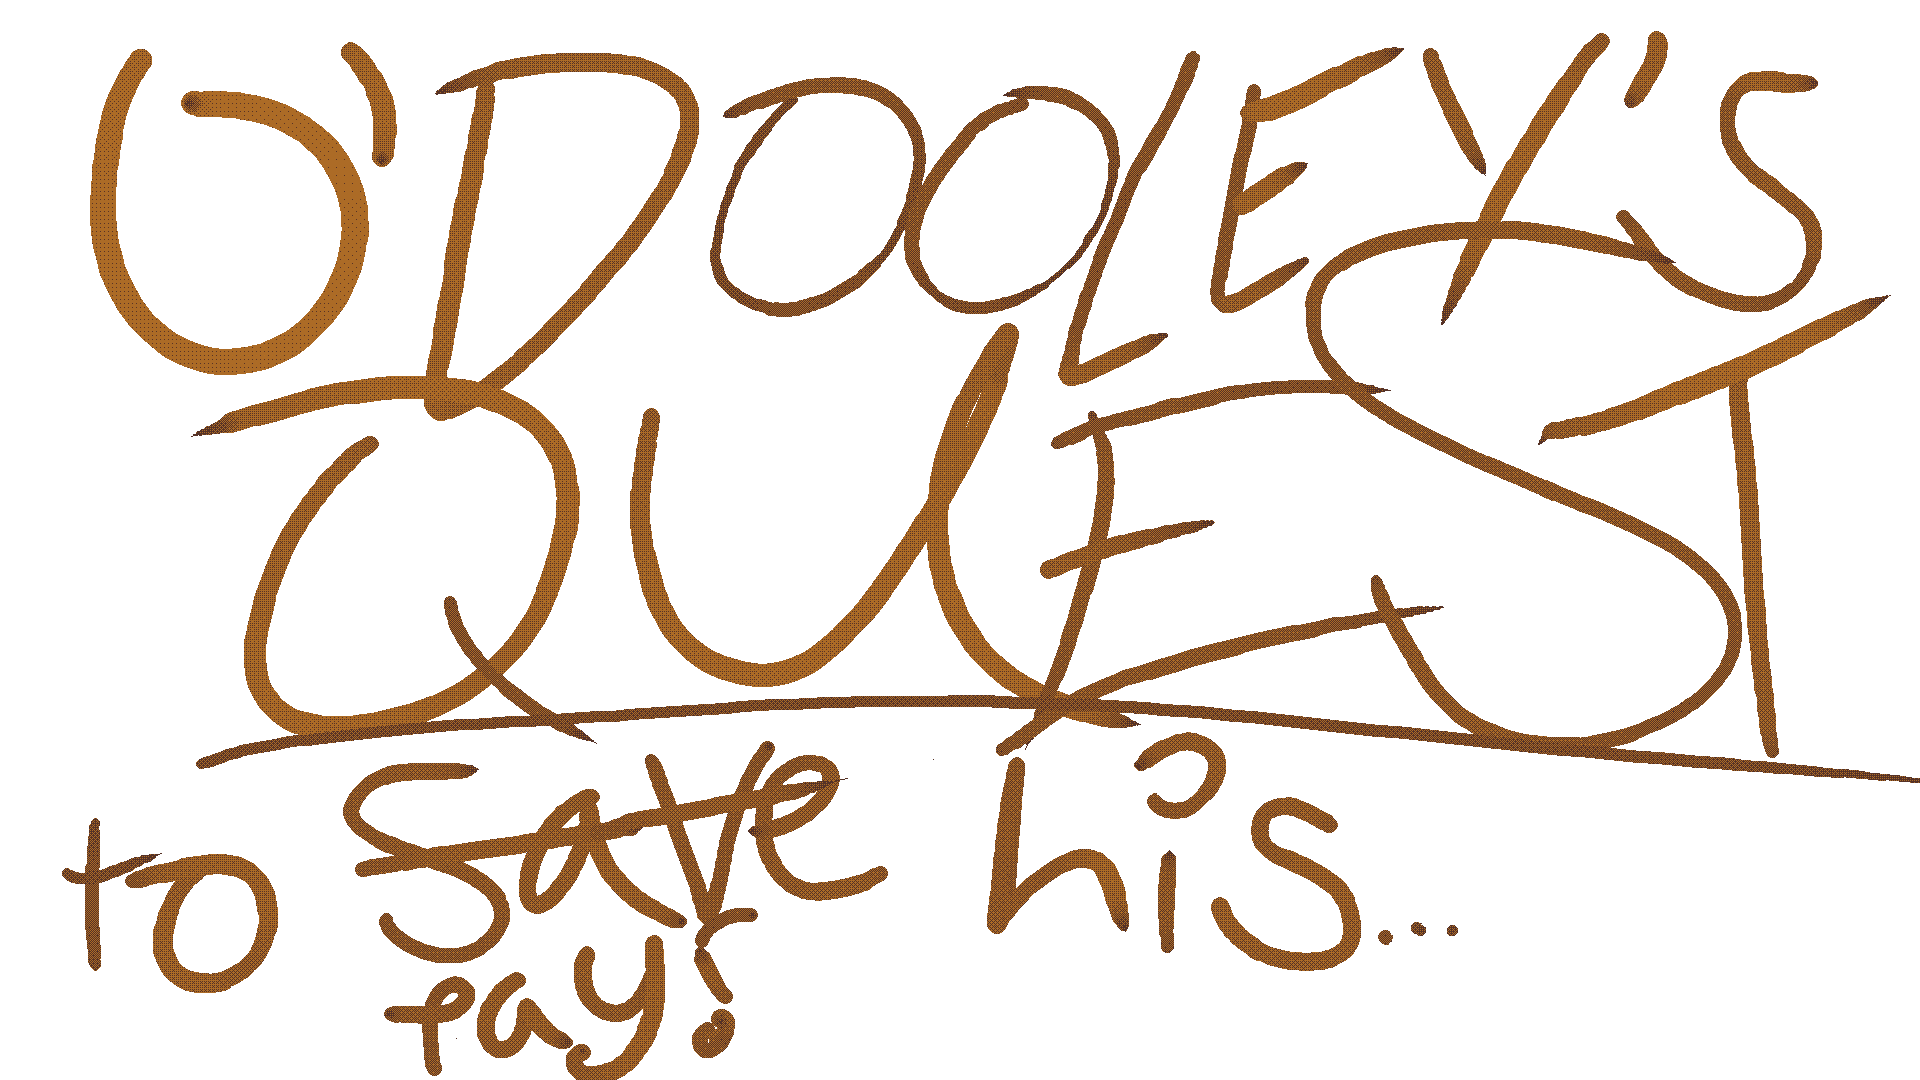 O'DOOLEY'S
QUEST
to save his...
pay?